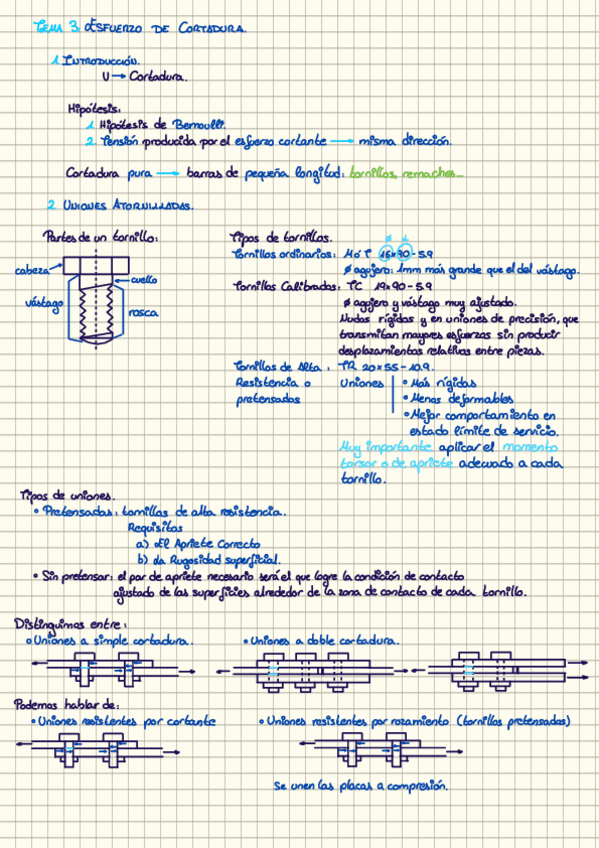 TEMA 3: ESFUERZO DE CORTADURA.
1. INTRODUCCIÓN.
U → Cortadura.
Hipótesis:
1. Hipótesis de Bernoulli.
2. Tensión producida por el esfuerzo cortante → misma dirección.
Cortadura pura → barras de pequeña longitud: tornillos, remaches...
2. UNIONES ATORNILLADAS.
Partes de un tornillo:
cabeza
cuello
vástago
rosca
Tipos de tornillos.
Ø L
Tornillos ordinarios: M ó T 16x90-5.9
Ø agujero: 1mm más grande que el del vástago.
Tornillos Calibrados: TC 19x90-5.9
Ø agujero y vástago muy ajustado.
Nudos rígidos y en uniones de precisión, que
transmitan mayores esfuerzos sin producir
desplazamientos relativos entre piezas.
Tornillos de Alta : TR 20x55-10.9.
Resistencia o
pretensados
Uniones
• Más rígidas
• Menos deformables
• Mejor comportamiento en
estado límite de servicio.
Muy importante aplicar el momento
torsor o de apriete adecuado a cada
tornillo.
Tipos de uniones.
• Pretensadas: tornillos de alta resistencia.
Requisitos
a) El Apriete Correcto
b) La Rugosidad superficial.
• Sin pretensar: el par de apriete necesario será el que logre la condición de contacto
ajustado de las superficies alrededor de la zona de contacto de cada tornillo.
Distinguimos entre:
• Uniones a simple cortadura.
• Uniones a doble cortadura.
Podemos hablar de:
• Uniones resistentes por cortante
• Uniones resistentes por rozamiento (tornillos pretensados)
Se unen las placas a compresión.